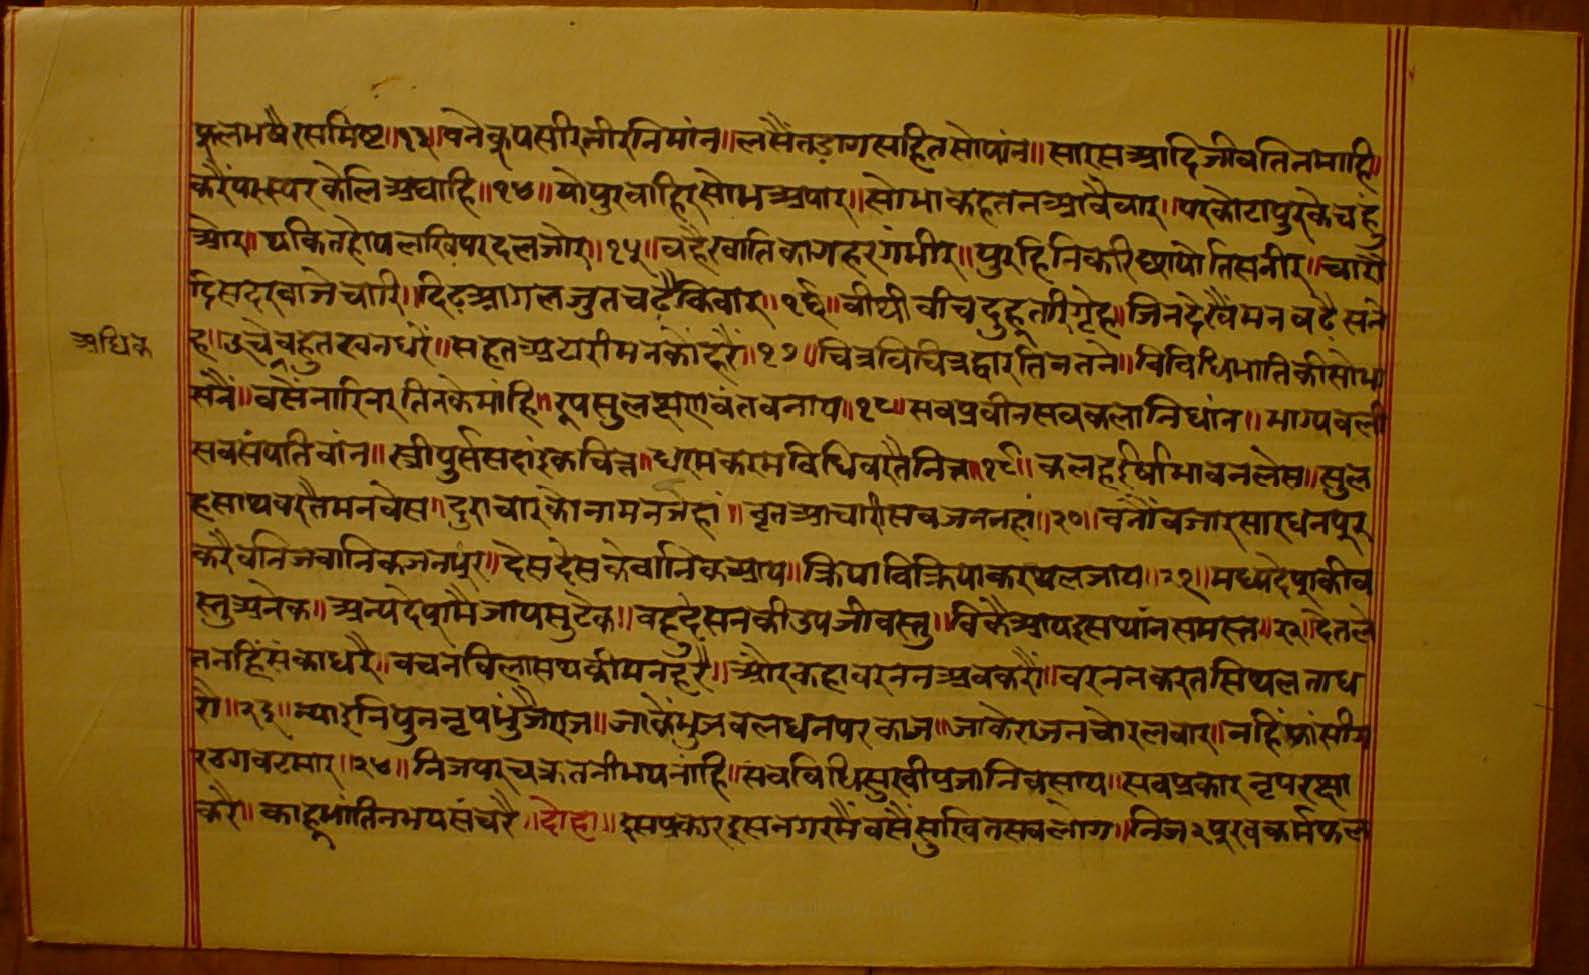 फूलेभषैरसमिष्ट॥१३॥वनेकूपसीरनीरनिमांन॥लसैंतडागसहितसोपांन॥सारसआदिजीवतिनमाहि॥
करैंपरस्परकेलिअघाहि॥१४॥योपुरवाहिरसोभअपार॥सोभाकहतनआवैवार॥परकोटापुरकेचहुं
ओर॥थकितहोयलखिपरदलजोर॥१५॥वहैखातिकागहरगंभीर॥पुरहिनिकरिछायोतिसनीर॥चारौं
दिसदरवाजेचारि॥दिढआगलजुतचढैकिवार॥१६॥वीथीवीचदुहूतरीगृह॥जिनदेखैंमनवढैसने
ह॥उचेवहुतखनधरैं॥सहतअटारीमनकोंहरैं॥१७॥चित्रविचित्रद्वारतिनतने॥विविधिभातिकीसोभा
सनैं॥वसैंनारिनरतिनकेमांहि॥रूपसुलक्षणवंतवनाय॥१८॥सवप्रवीनसवकलानिधांन॥भाग्यवली
सवसंपतिवांन॥स्त्रीपुर्ससदांइकचित्त॥धरमकरमविधिवरतैनित्त॥१९॥कलहईर्षाभावनलेस॥सुल
हसाथवरतैमनवेस॥दुराचारकोनामनजहां॥वृतआचारीसवजनतहां॥२०॥वर्नौंवजारसारधनपूर
करैंवनिजवानिकजनभूर॥देसदेसकेवानिकआय॥क्रियाविक्रियाकरथलजाय॥२१॥मध्यदेषकीव
स्तुअनेक॥अन्यदेषमैजायसुटेक॥वहुदेसनकीउपजीवस्तु॥विकैआयइसथांनसमस्त॥२२॥देतले
तनहिंसंकाधरै॥वचनविलासथकीमनहरै॥औरकहावरननअवकरौं॥वरननकरतसिथलताध
रौं॥२३॥न्याइनिपुननृपभुंजैराज॥जाकैंभुजवलधनपरकाज॥जाकेराजनचोरलवार॥नहिंफांसीग
रठगवटमार॥२४॥निजपरचक्रतनीभयनांहि॥सवविधिसुखीप्रजानिवसाय॥सवप्रकारनृपरक्षा
करै॥काहूभांतिनभयसंचरै॥दोहा॥इसप्रकारइसनगरमैंवसैंसुखितसवलोग॥निज२पूरवकर्मफल
अधिक